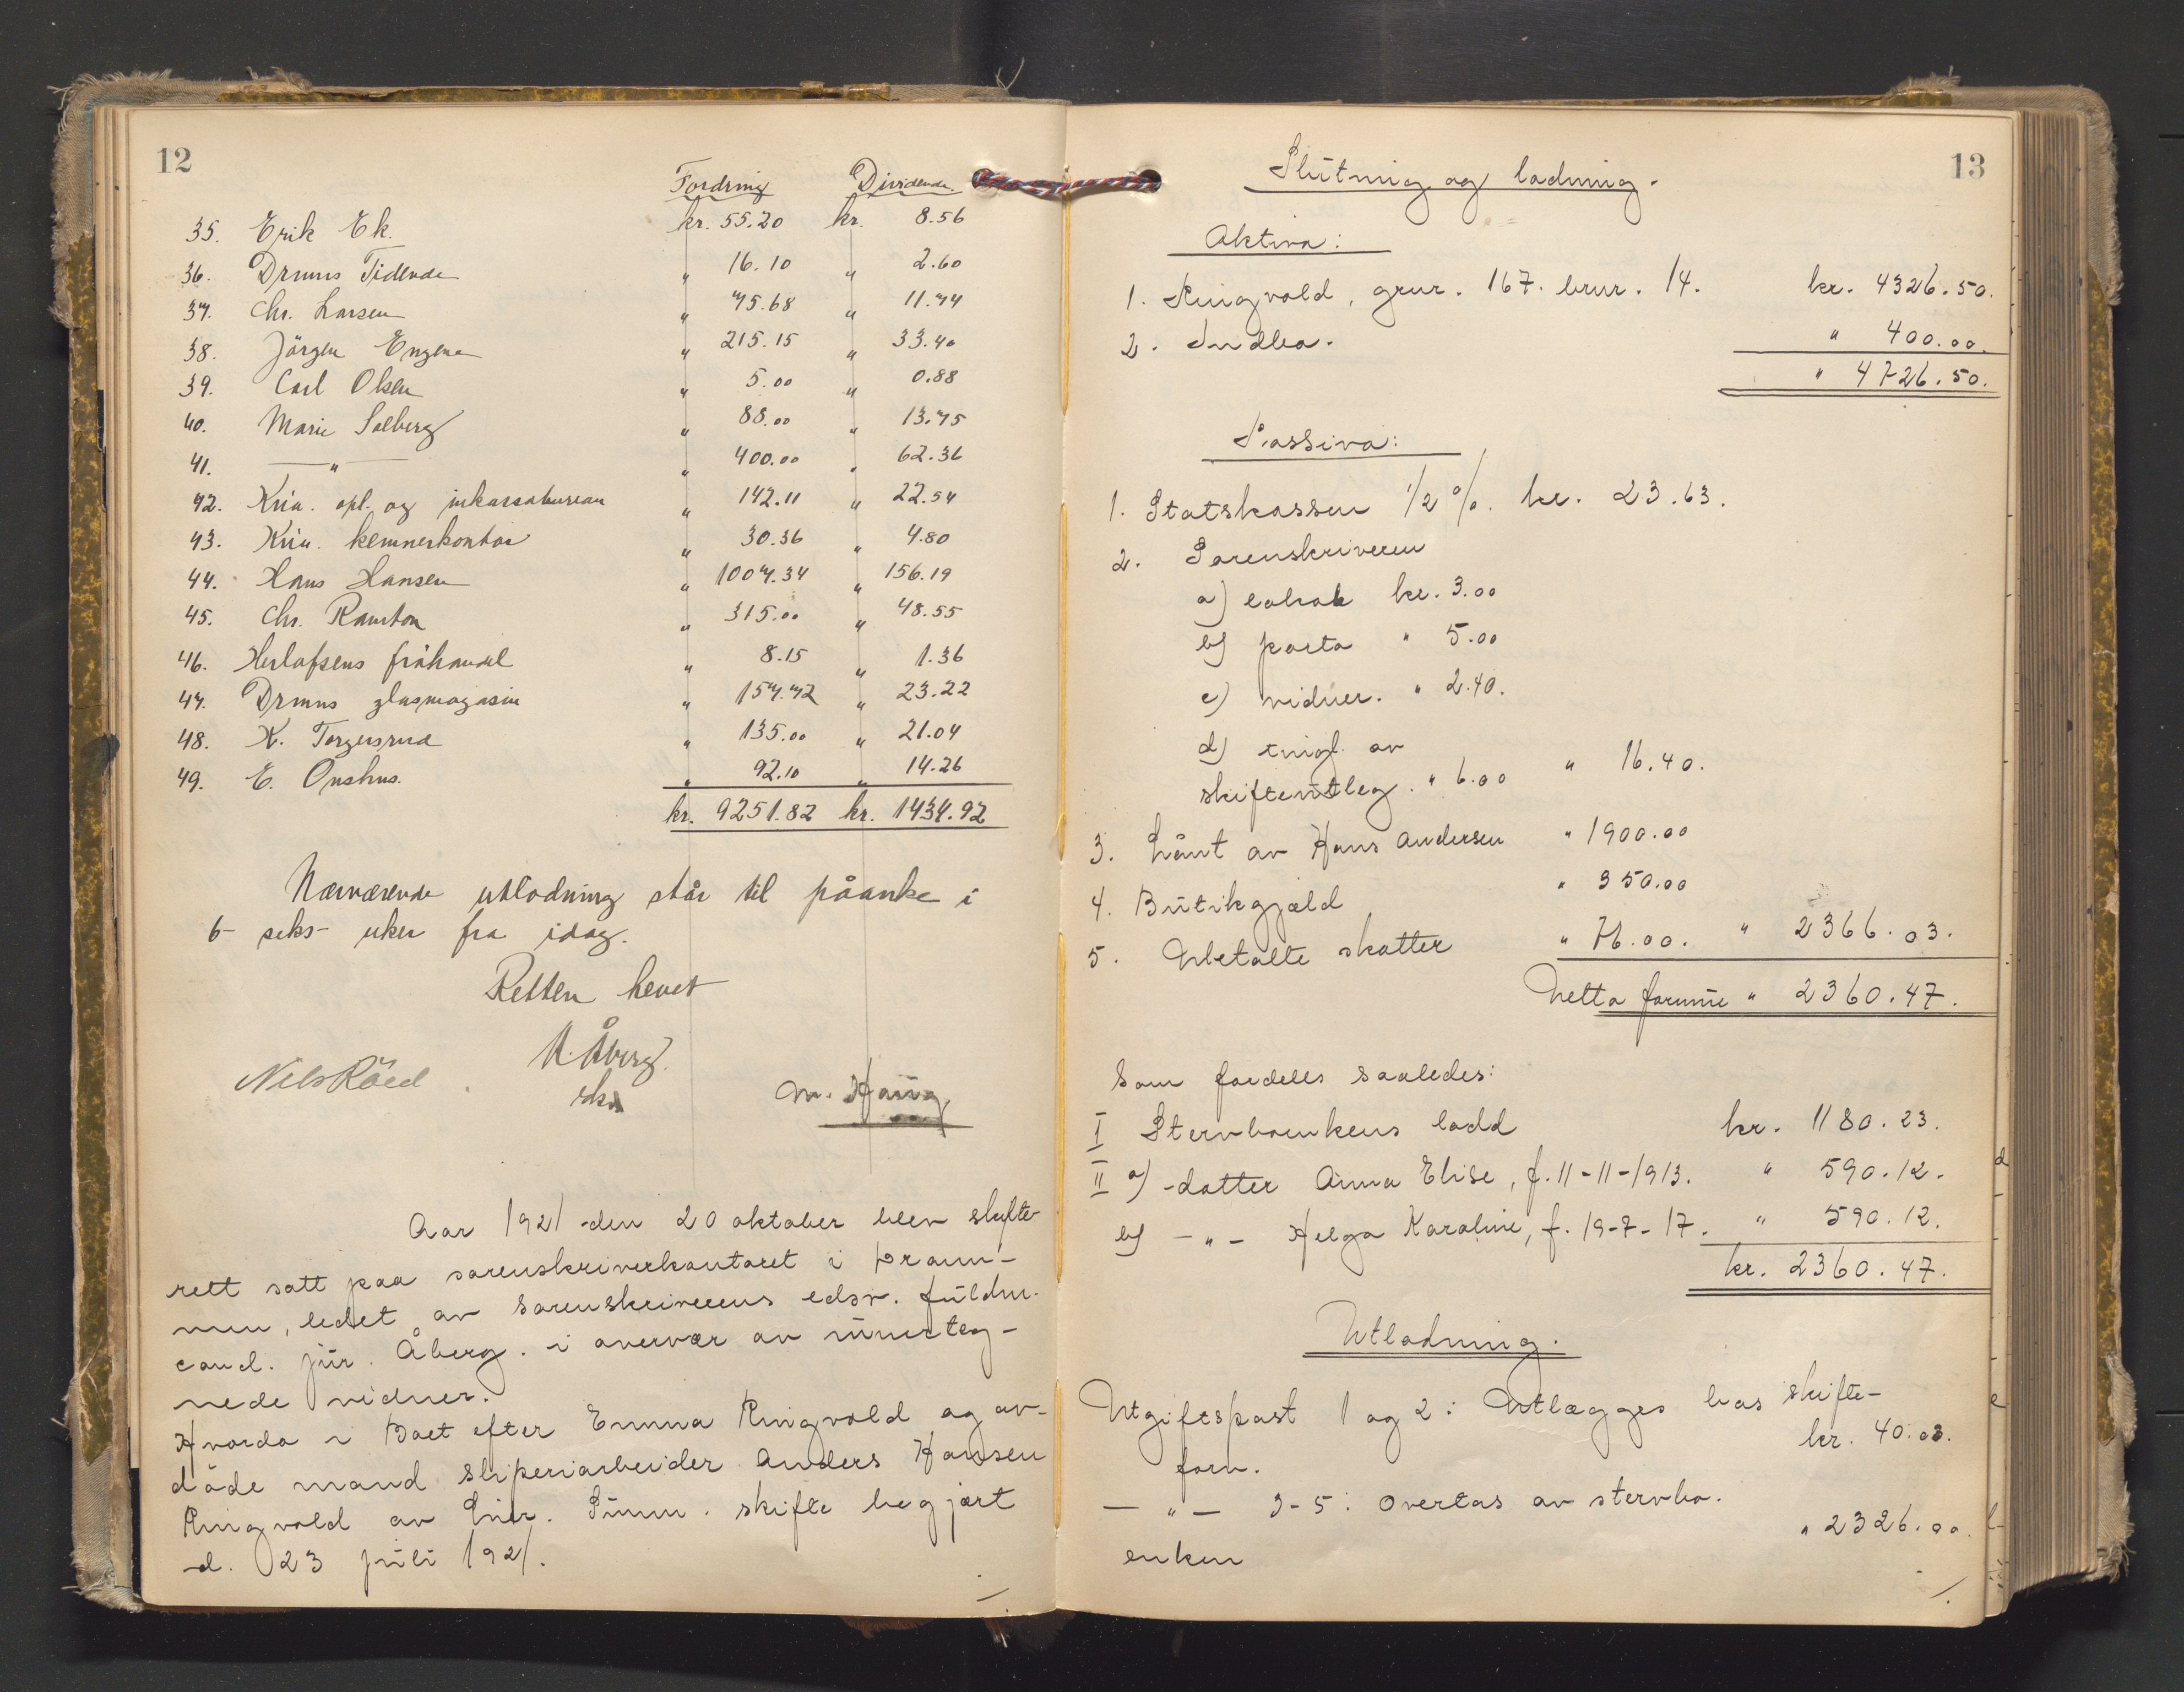 12
Fordring Dividende.
35. Erik Ek. kr. 55.20 kr. 8.56
36. Drmns Tidende " 16.10 " 2.60
37. Chr. Larsen " 75.68 " 11.74
38. Jörgen Engene " 215.15 " 33.40
39. Carl Olsen " 5.00 " 0.88
40. Marie Solberg " 88.00 " 13.75
41. —"— " 400.00 " 62.36
42. Kria. opl. og inkassobureau " 142.11 " 22.54
43. Kria. kemnerkontor " 30.36 " 4.80
44. Hans Hansen " 1007.34 " 156.19
45. Chr. Ramton " 315.00 " 48.55
46. Herlofsens fröhandel " 8.15 " 1.36
47. Drmns glasmagasin " 157.72 " 23.22
48. K. Torgersrud " 135.00 " 21.04
49. E. Onshus. " 92.10 " 14.26
kr. 9251.82 kr. 1434.92
Nærværende utlodning står til påanke i
6- seks- uker fra idag.
Retten hevet
N. Åberg
Nils Röed
M. Haug
Aar 1921 den 20 oktober blev skifte-
rett satt paa sorenskriverkontoret i Dram-
men, ledet av sorenskriverens edsv. fuldm.
cand. jur. Åberg. i overvær av underteg-
nede vidner.
Hvorda i Boet efter Emma Ringvold og av-
döde mand sliperiarbeider Anders Hansen
Ringvold av Skifte begjært
d. 23 juli 1921.
13
Slutning og lodning.
Aktiva:
1. Ringvold, grnr. 167. brnr. 14. kr. 4326.50.
2. Indbo. " 400.00.
" 4726.50.
Passiva:
1. Statskassen 1/2 %. kr. 23.63.
2. Sorenskriveren
a) kr. 3.00
b) porto " 5.00
c) vidner. " 2.40.
d) tingl. av
skifteutleg. " 6.00 " 16.40.
3. Lånt av Hans Andersen " 1900.00
4. Butikgjæld " 350.00
5. Ubetalte skatter " 76.00. " 2366.03.
Netto formue " 2360.47.
Som fordeles saaledes:
I Stervboenkens lodd kr. 1180.23.
II a) datter Anna Elise, f. 11-11-1913. " 590.12.
b) -"- Helga Karoline, f. 19-7-17. " 590.12.
kr. 2360.47.
Utlodning.
Utgiftspost 1 og 2: Utlægges hos skifte-
forv. kr. 40.03.
—"— 3-5: overtas av stervbo-
enken " 2326.00.